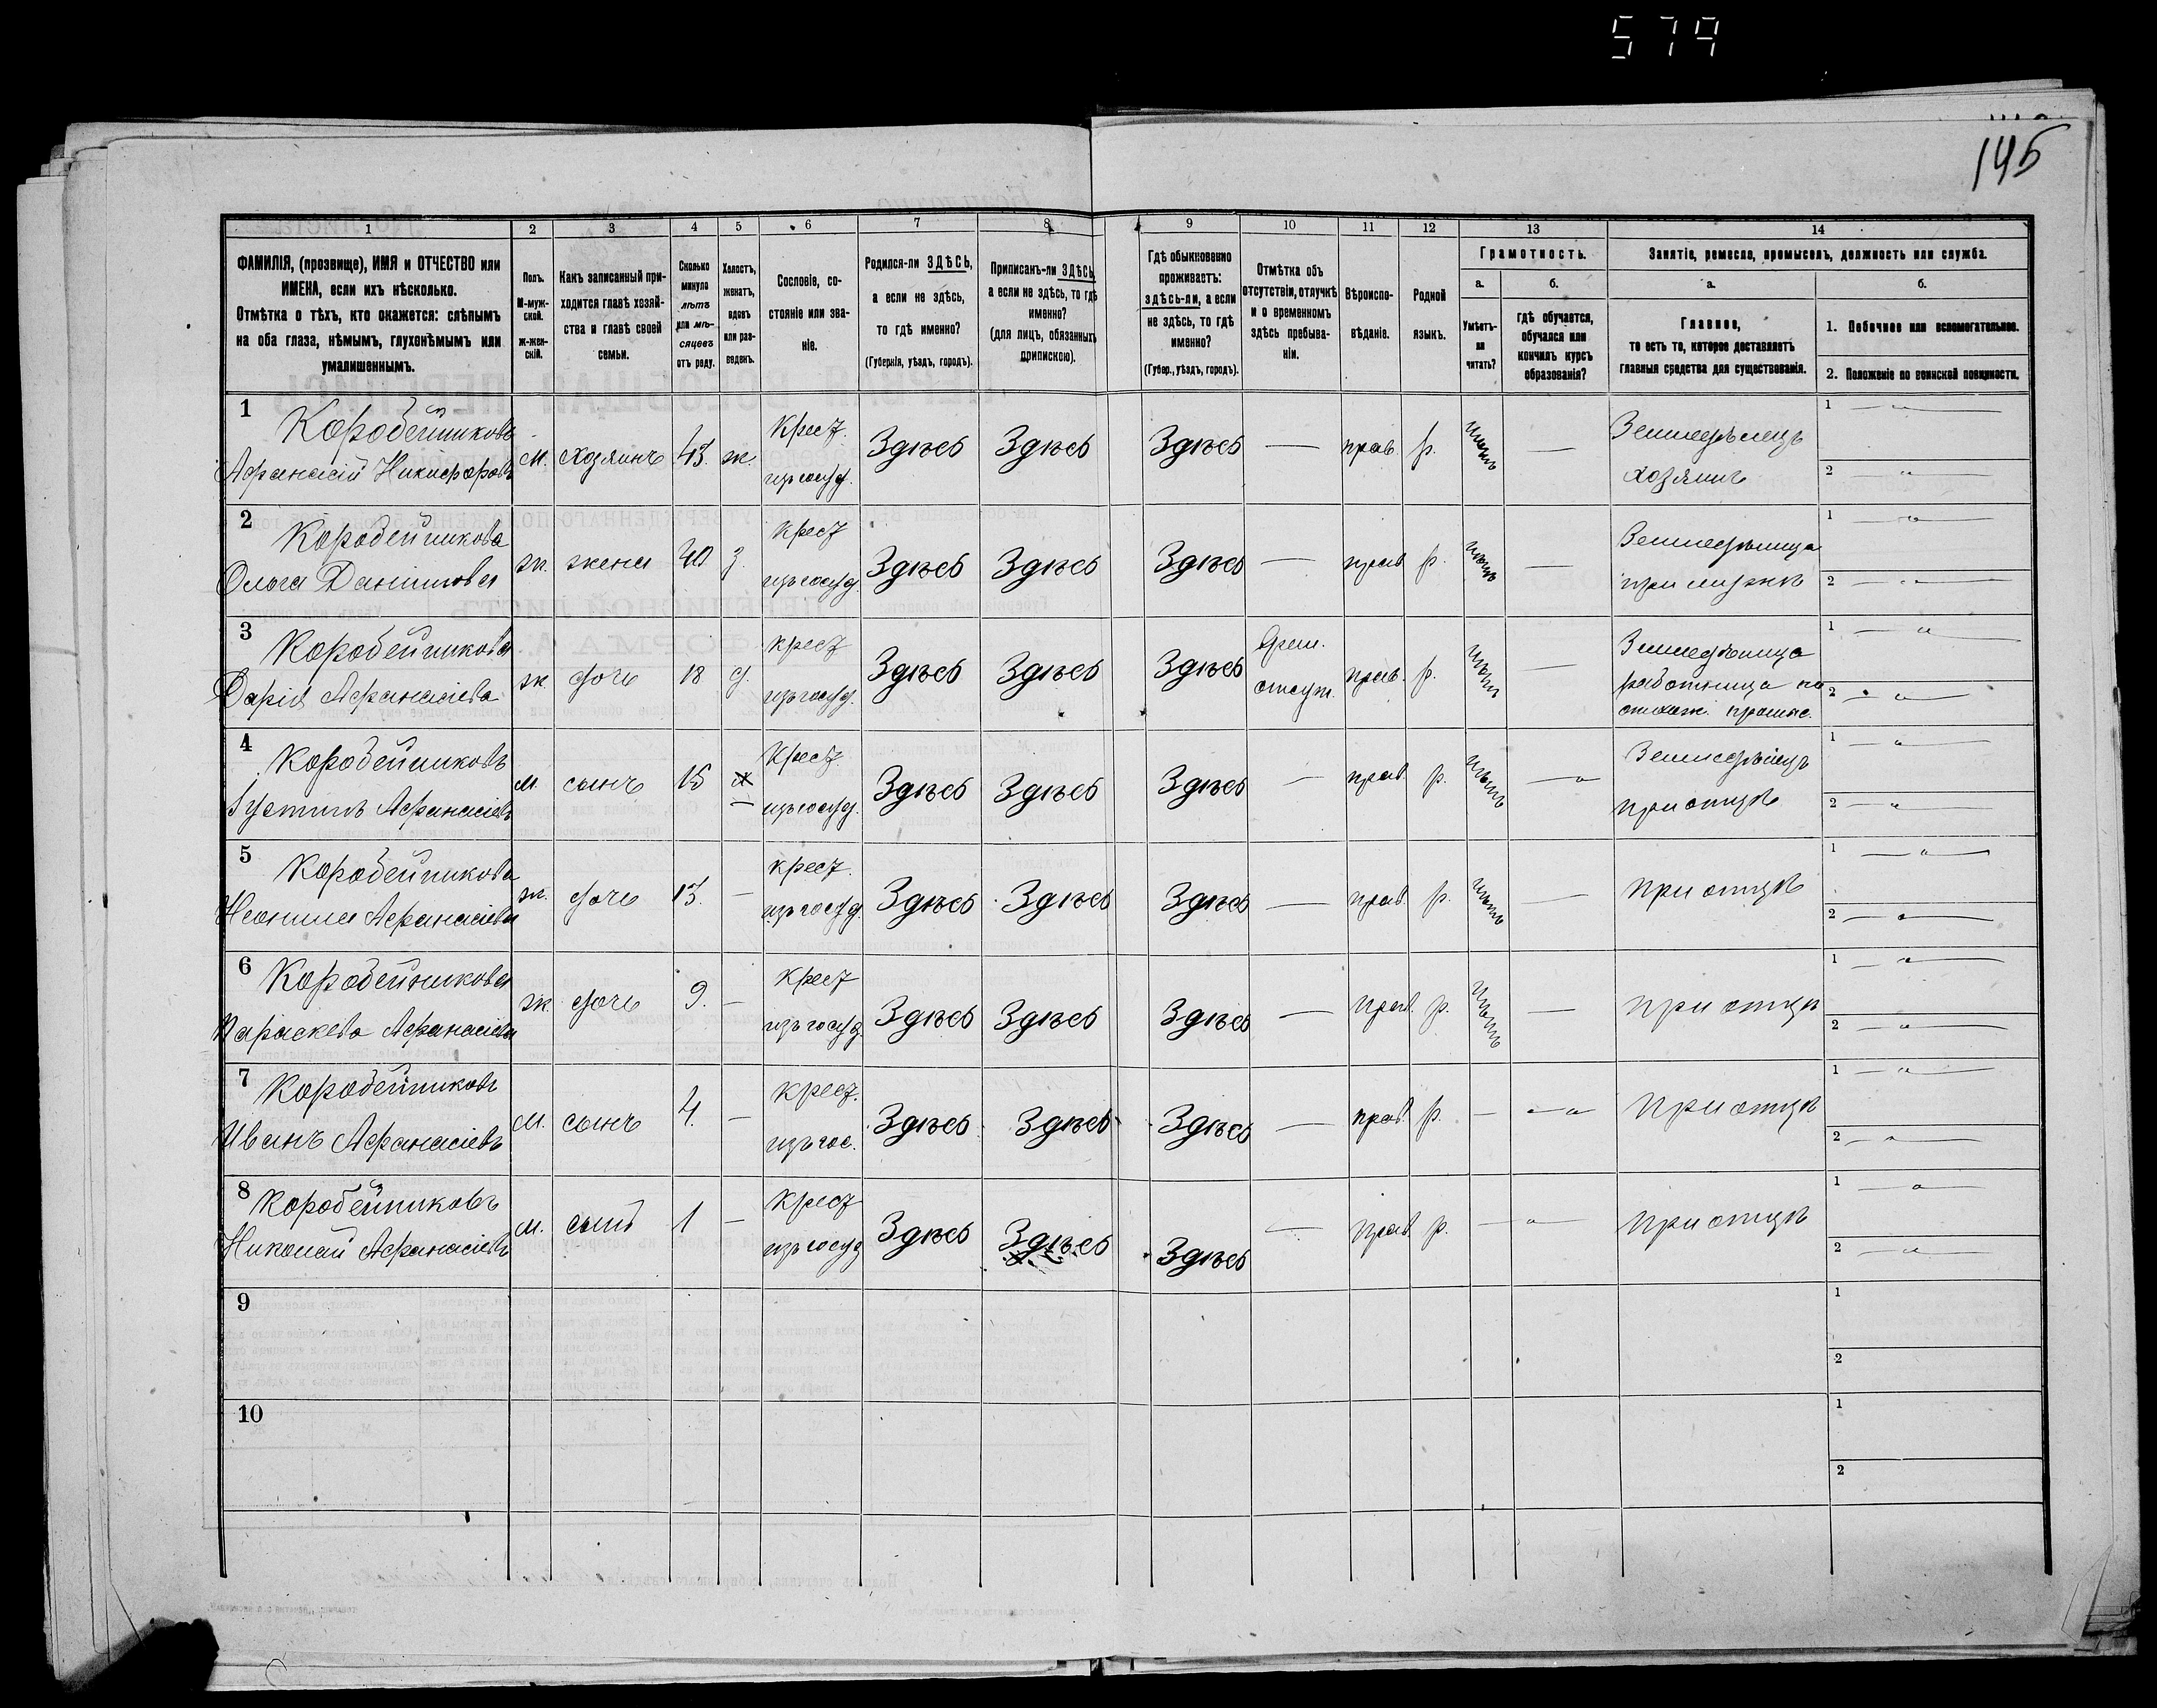 579
145
1 2 3 4 5 6 7 8 9 10 11 12 13 14
ФАМИЛІЯ, (прозвище), ИМЯ и ОТЧЕСТВО или
ИМЕНА, если ихъ нѣсколько.
Отмѣтка о тѣхъ, кто окажется: слѣпымъ
на оба глаза, нѣмымъ, глухонѣмымъ или
умалишеннымъ.
Полъ.
М-муж-
ской.
ж-жен-
скій.
Какъ записанный при-
ходится главѣ хозяй-
ства и главѣ своей
семьи.
Сколько
минуло
лѣтъ
или мѣ-
сяцевъ
отъ роду.
Холостъ,
женатъ,
вдовъ
или раз-
веденъ.
Сословіе, со-
стояніе или зва-
ніе.
Родился-ли ЗДѢСЬ,
а если не здѣсь,
то гдѣ именно?
(Губернія, уѣздъ, городъ).
Приписанъ-ли ЗДѢСЬ,
а если не здѣсь, то гдѣ
именно?
(для лицъ, обязанныхъ
припискою).
Гдѣ обыкновенно
проживаетъ:
здѣсь-ли, а если
не здѣсь, то гдѣ
именно?
(Губер., уѣздъ, городъ).
Отмѣтка объ
отсутствіи, отлучкѣ
и о временномъ
здѣсь пребыва-
ніи.
Вѣроиспо-
вѣданіе.
Родной
языкъ.
Грамотность.
а.
Умѣетъ-
ли
читать?
б.
гдѣ обучается,
обучался или
кончилъ курсъ
образованія?
Занятіе, ремесло, промыселъ, должность или служба.
а.
Главное,
то есть то, которое доставляетъ
главныя средства для существованія.
б.
1. Побочное или вспомогательное.
2. Положеніе по воинской повинности.
1 Коробейниковъ
Афанасій Никифоровъ
м. хозяинъ 43. ж.
Крест.
изъ госуд.
Здѣсь Здѣсь Здѣсь — прав. р. — Земледѣлецъ
хозяинъ
1 —
2 —
2 Коробейникова
Ольга Данилова
ж. жена 40 з.
Крест
изъ госуд.
Здѣсь Здѣсь Здѣсь — прав р. — Земледѣлица
при мужѣ
1 —
2 —
3 Коробейникова
Дарія Афанасіева
ж. дочь 18 д.
крест
изъ госуд.
Здѣсь Здѣсь Здѣсь Врем.
отсут. прав. р. — Земледѣлица
работница на
отхож. промыс.
1 —
2 —
4 Коробейниковъ
Іустинъ Афанасіевъ
м. сынъ 15 —
Крест.
изъ госуд.
Здѣсь Здѣсь Здѣсь — прав. р. — Земледѣлецъ
при отцѣ
1 —
2 —
5 Коробейникова
Неонила Афанасіева
ж. дочь 13. —
крест.
изъ госуд.
Здѣсь Здѣсь Здѣсь — прав. р. — при отцѣ
1 —
2 —
6 Коробейникова
Параскева Афанасіева
ж. дочь 9. —
крест
изъ госуд.
Здѣсь Здѣсь Здѣсь — прав. р. — при отцѣ
1 —
2 —
7 Коробейниковъ
Иванъ Афанасіевъ
м. сынъ 4. —
крест.
изъ гос.
Здѣсь Здѣсь Здѣсь — прав. р. — — при отцѣ
1 —
2 —
8 Коробейниковъ
Николай Афанасіевъ
м. сынъ 1 —
крест
изъ госуд
Здѣсь Здѣсь Здѣсь — прав. р. — — при отцѣ
1 —
2 —
9
1
2
10
1
2